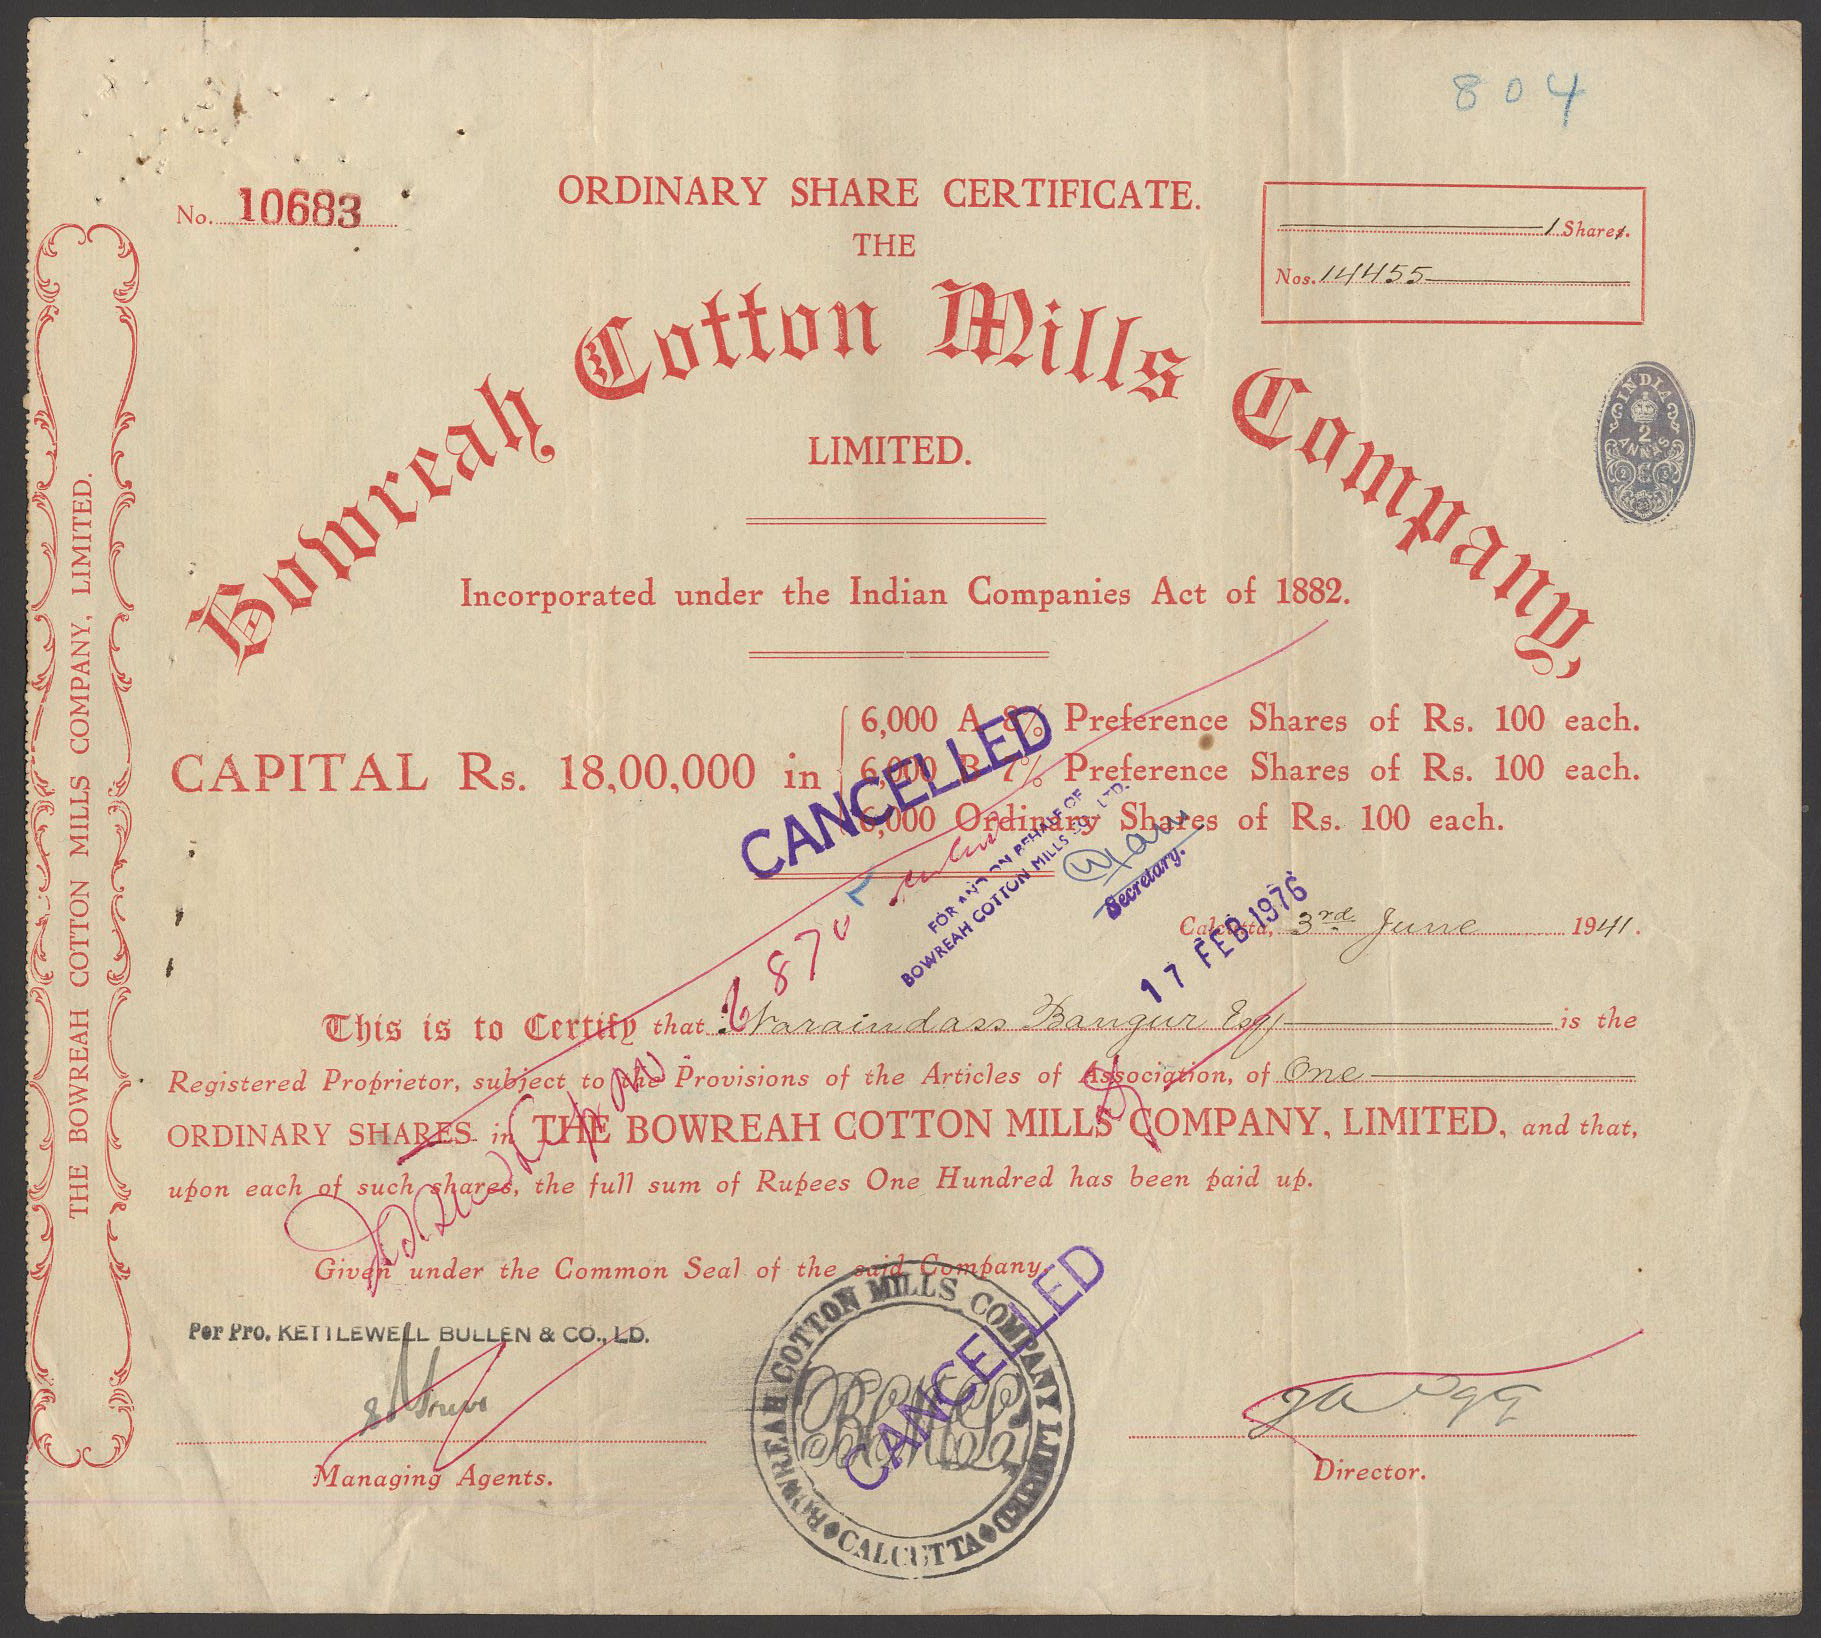 804
No. 10683
ORDINARY SHARE CERTIFICATE.
1 Shares.
Nos. 14455
THE
Bowreah Cotton Mills Company,
LIMITED.
INDIA
2
ANNAS
Incorporated under the Indian Companies Act of 1882.
CAPITAL Rs. 18,00,000 in
6,000 A 8% Preference Shares of Rs. 100 each.
6,000 B 7% Preference Shares of Rs. 100 each.
6,000 Ordinary Shares of Rs. 100 each.
CANCELLED
FOR AND ON BEHALF OF
BOWREAH COTTON MILLS CO., LTD.
Secretary.
17 FEB 1976
Calcutta, 3rd. June 1941.
This is to Certify that Naraindass Bangur Esq is the
Registered Proprietor, subject to the Provisions of the Articles of Association, of One
ORDINARY SHARES in THE BOWREAH COTTON MILLS COMPANY, LIMITED, and that,
upon each of such shares, the full sum of Rupees One Hundred has been paid up.
Given under the Common Seal of the said Company.
Per Pro. KETTLEWELL BULLEN & CO., LD.
Managing Agents.
BOWREAH COTTON MILLS COMPANY LIMITED
CALCUTTA
CANCELLED
Director.
THE BOWREAH COTTON MILLS COMPANY, LIMITED.